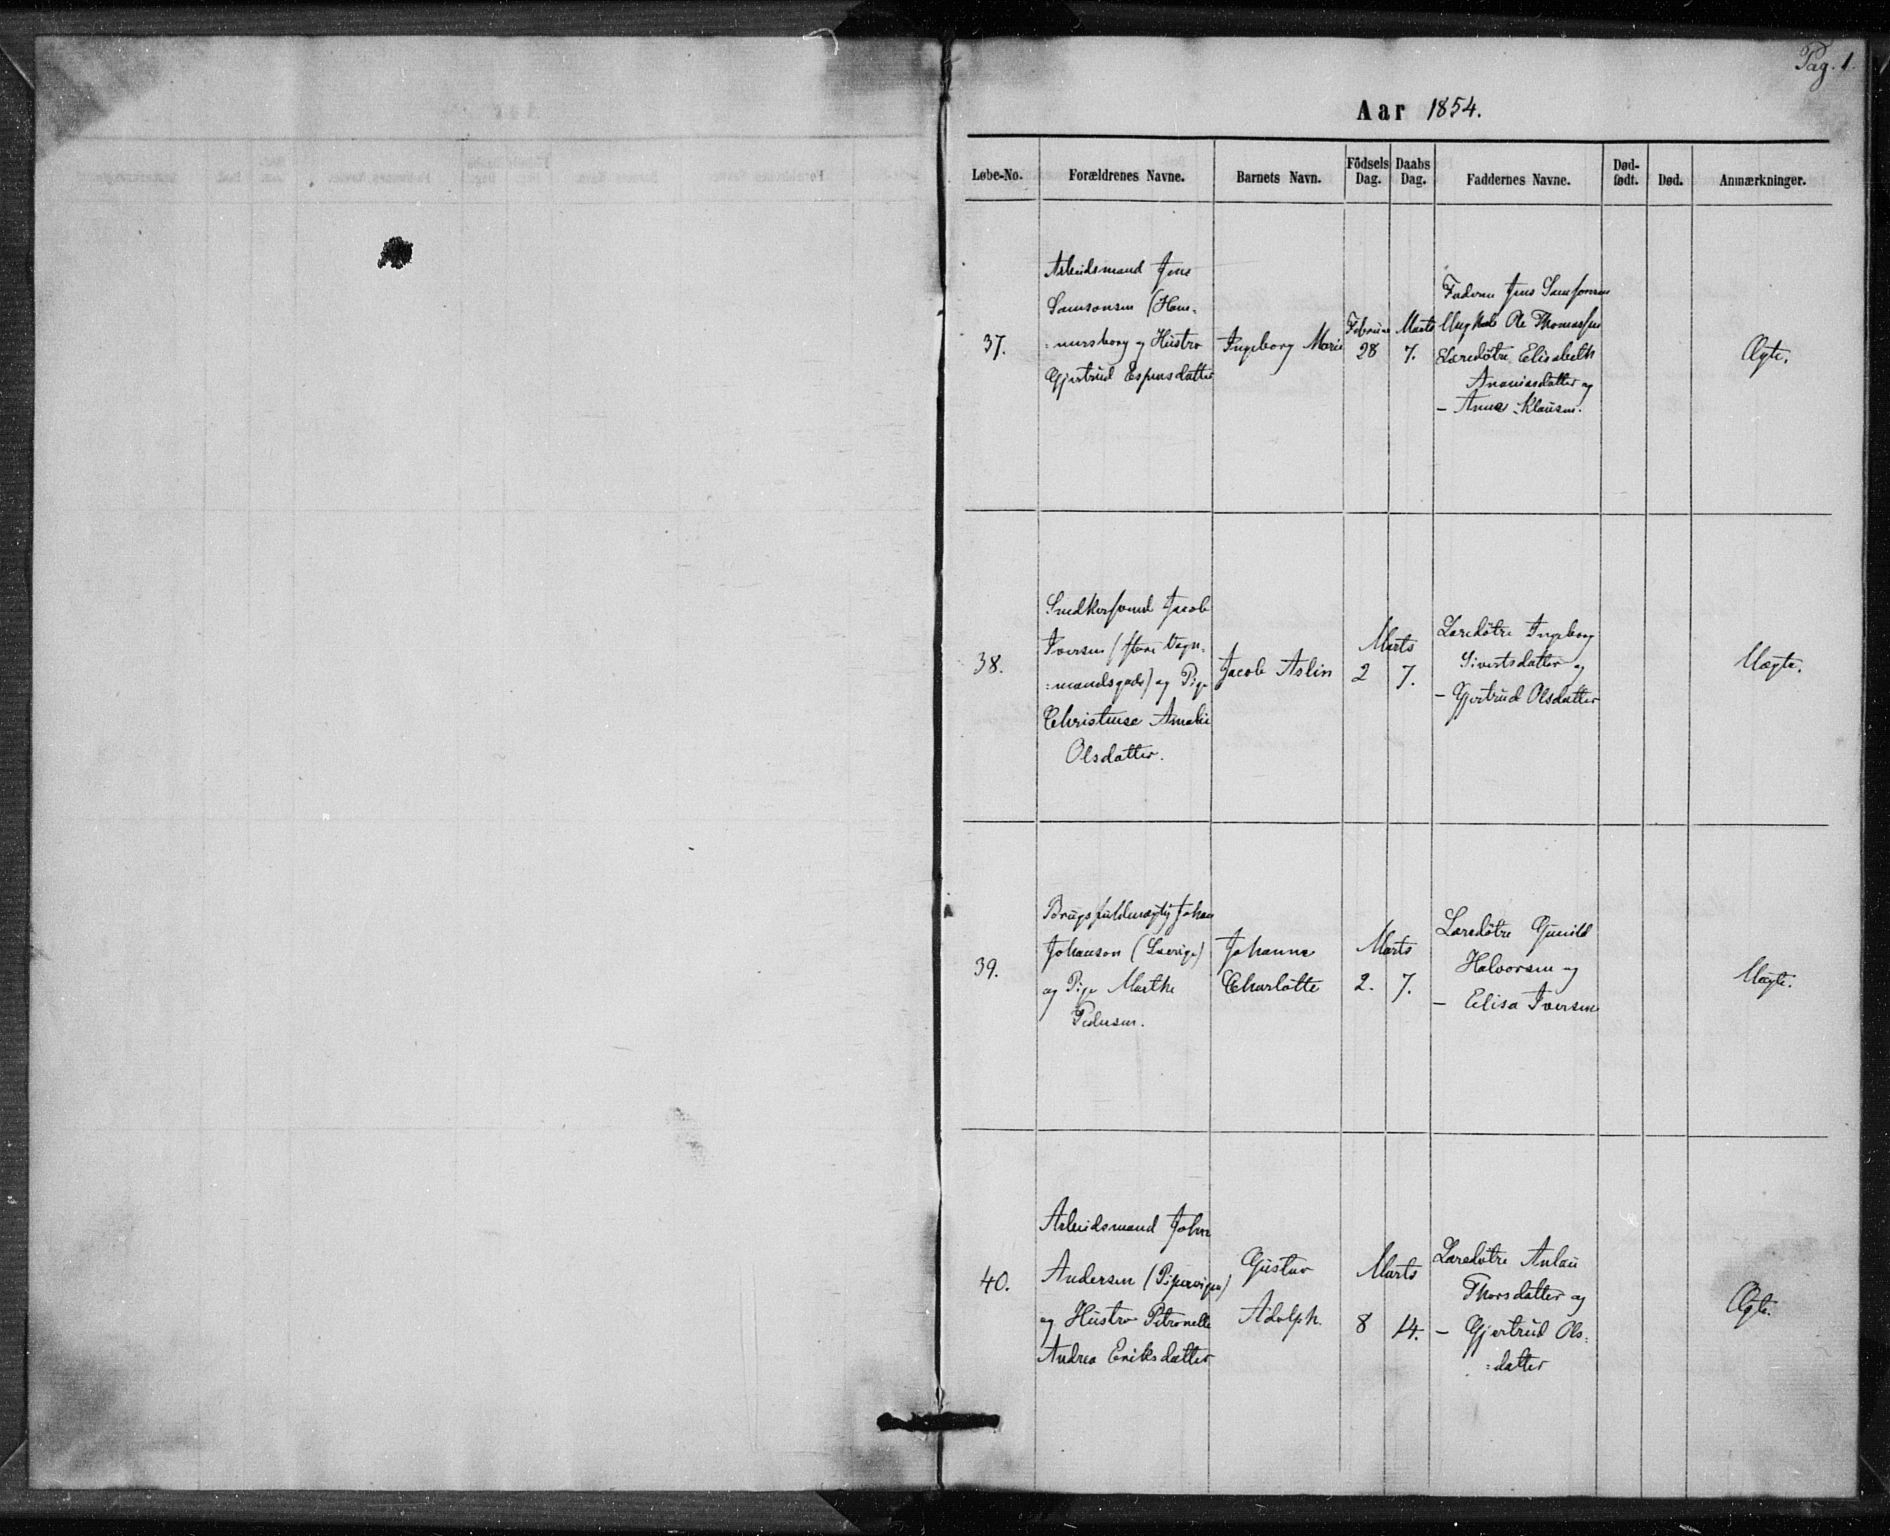 Pag. 1.
Aar 1854.
Løbe-No. Forældrenes Navne. Barnets Navn. Födsels Dag. Daabs Dag. Faddernes Navne. Død-født. Død. Anmærkninger.
37.
Arbeidsmand Jens
Samsonsen (Ham-
=mersborg og Hustro
Gjertrud Espensdatter
Ingeborg Marie
Februar
28
Marts
7.
Faderen Jens Samsonsen
Ungkarl Ole Thomassen
Læredötre Elisabeth
Ananiasdatter og
– Anne Klausen.
Ægte.
38.
Snedkersvend Jacob
Iversen (store Vogn-
=mandsgade) og Pige
Christense Amalie
Olsdatter.
Jacob Aslin
Marts
2 7.
Læredötre Ingeborg
Sivertsdatter og
– Gjertrud Olsdatter
Uægte.
39.
Brugsfuldmægtig Johan
Johanson (Sverige)
og Pige Marthe
Pedersen.
Johanne
Charlotte
Marts
2. 7.
Læredötre Gunild
Halvorsen og
– Elisa Iversen
Uægte.
40.
Arbeidsmand John
Andersen (Pipervigen)
og Hustro Petronelle
Andrea Eriksdatter
Gustav
Adolph.
Marts
8 14.
Læredötre
Thorsdatter og
– Gjertrud Ols-
=datter
Ægte.